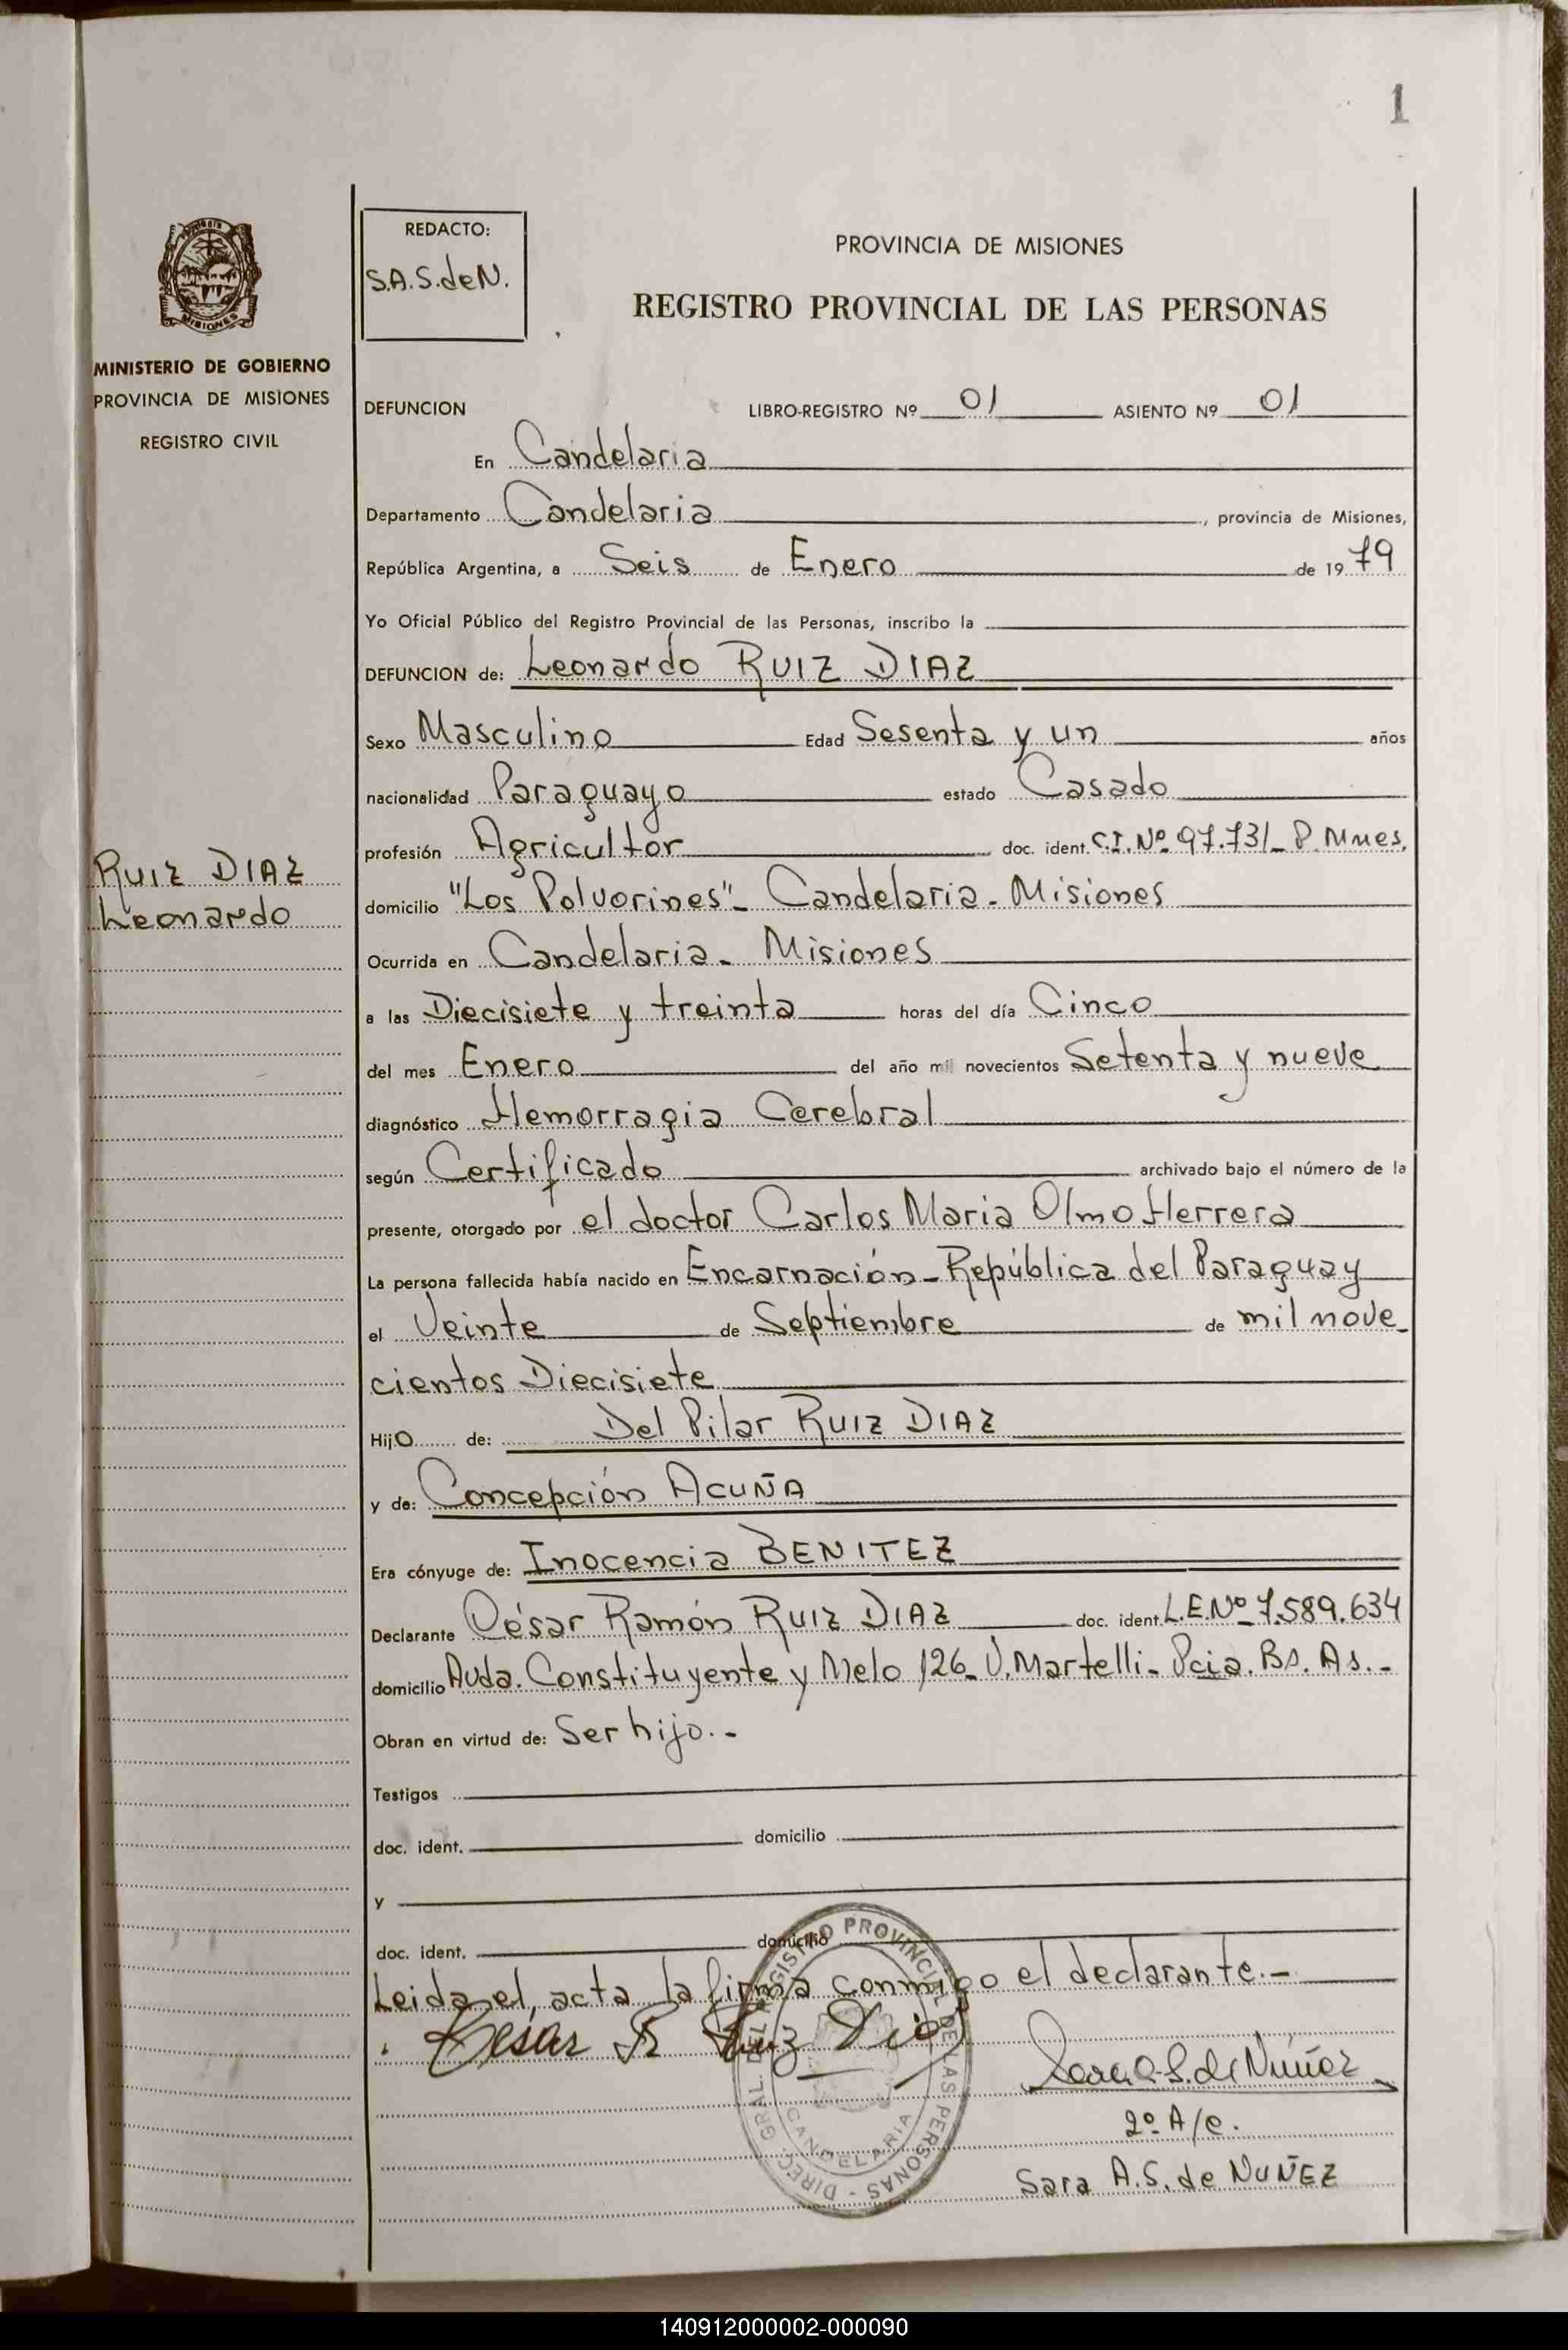 1
MISIONES
MINISTERIO DE GOBIERNO
PROVINCIA DE MISIONES
REGISTRO CIVIL
RUIZ DIAZ
Leonardo
REDACTO:
S.A.S.deN.
PROVINCIA DE MISIONES
REGISTRO PROVINCIAL DE LAS PERSONAS
DEFUNCION LIBRO-REGISTRO Nº 01 ASIENTO Nº 01
En Candelaria
Departamento Candelaria, provincia de Misiones,
República Argentina, a Seis de Enero de 1979
Yo Oficial Público del Registro Provincial de las Personas, inscribo la
DEFUNCION de: Leonardo RUIZ DIAZ
Sexo Masculino Edad Sesenta y un años
nacionalidad Paraguayo estado Casado
profesión Agricultor doc. ident. C.I. Nº 97.731_ P. Mnes.
domicilio "Los Polvorines"_ Candelaria - Misiones
Ocurrida en Candelaria - Misiones
a las Diecisiete y treinta horas del día Cinco
del mes Enero del año mil novecientos Setenta y nueve
diagnóstico Hemorragia Cerebral
según Certificado archivado bajo el número de la
presente, otorgado por el doctor Carlos Maria Olmo Herrera
La persona fallecida había nacido en Encarnación - República del Paraguay
el Veinte de Septiembre de mil nove_
cientos Diecisiete
Hijo de: Del Pilar RUIZ DIAZ
y de: Concepción ACUÑA
Era cónyuge de: Inocencia BENITEZ
Declarante César Ramón RUIZ DIAZ doc. ident. L.E.Nº 7.589.634
domicilio Avda. Constituyente y Melo 126_ V. Martelli - Pcia. Bs. As. -
Obran en virtud de: Ser hijo. -
Testigos
doc. ident. domicilio
y
doc. ident. domicilio
Leida el acta la firma conmigo el declarante. -
César R Ruiz Diaz
Sara A. S. de Núñez
2º A/c.
Sara A.S. de NUÑEZ
DIREC. GRAL. DEL REGISTRO PROVINCIAL DE LAS PERSONAS -
CANDELARIA
140912000002-000090